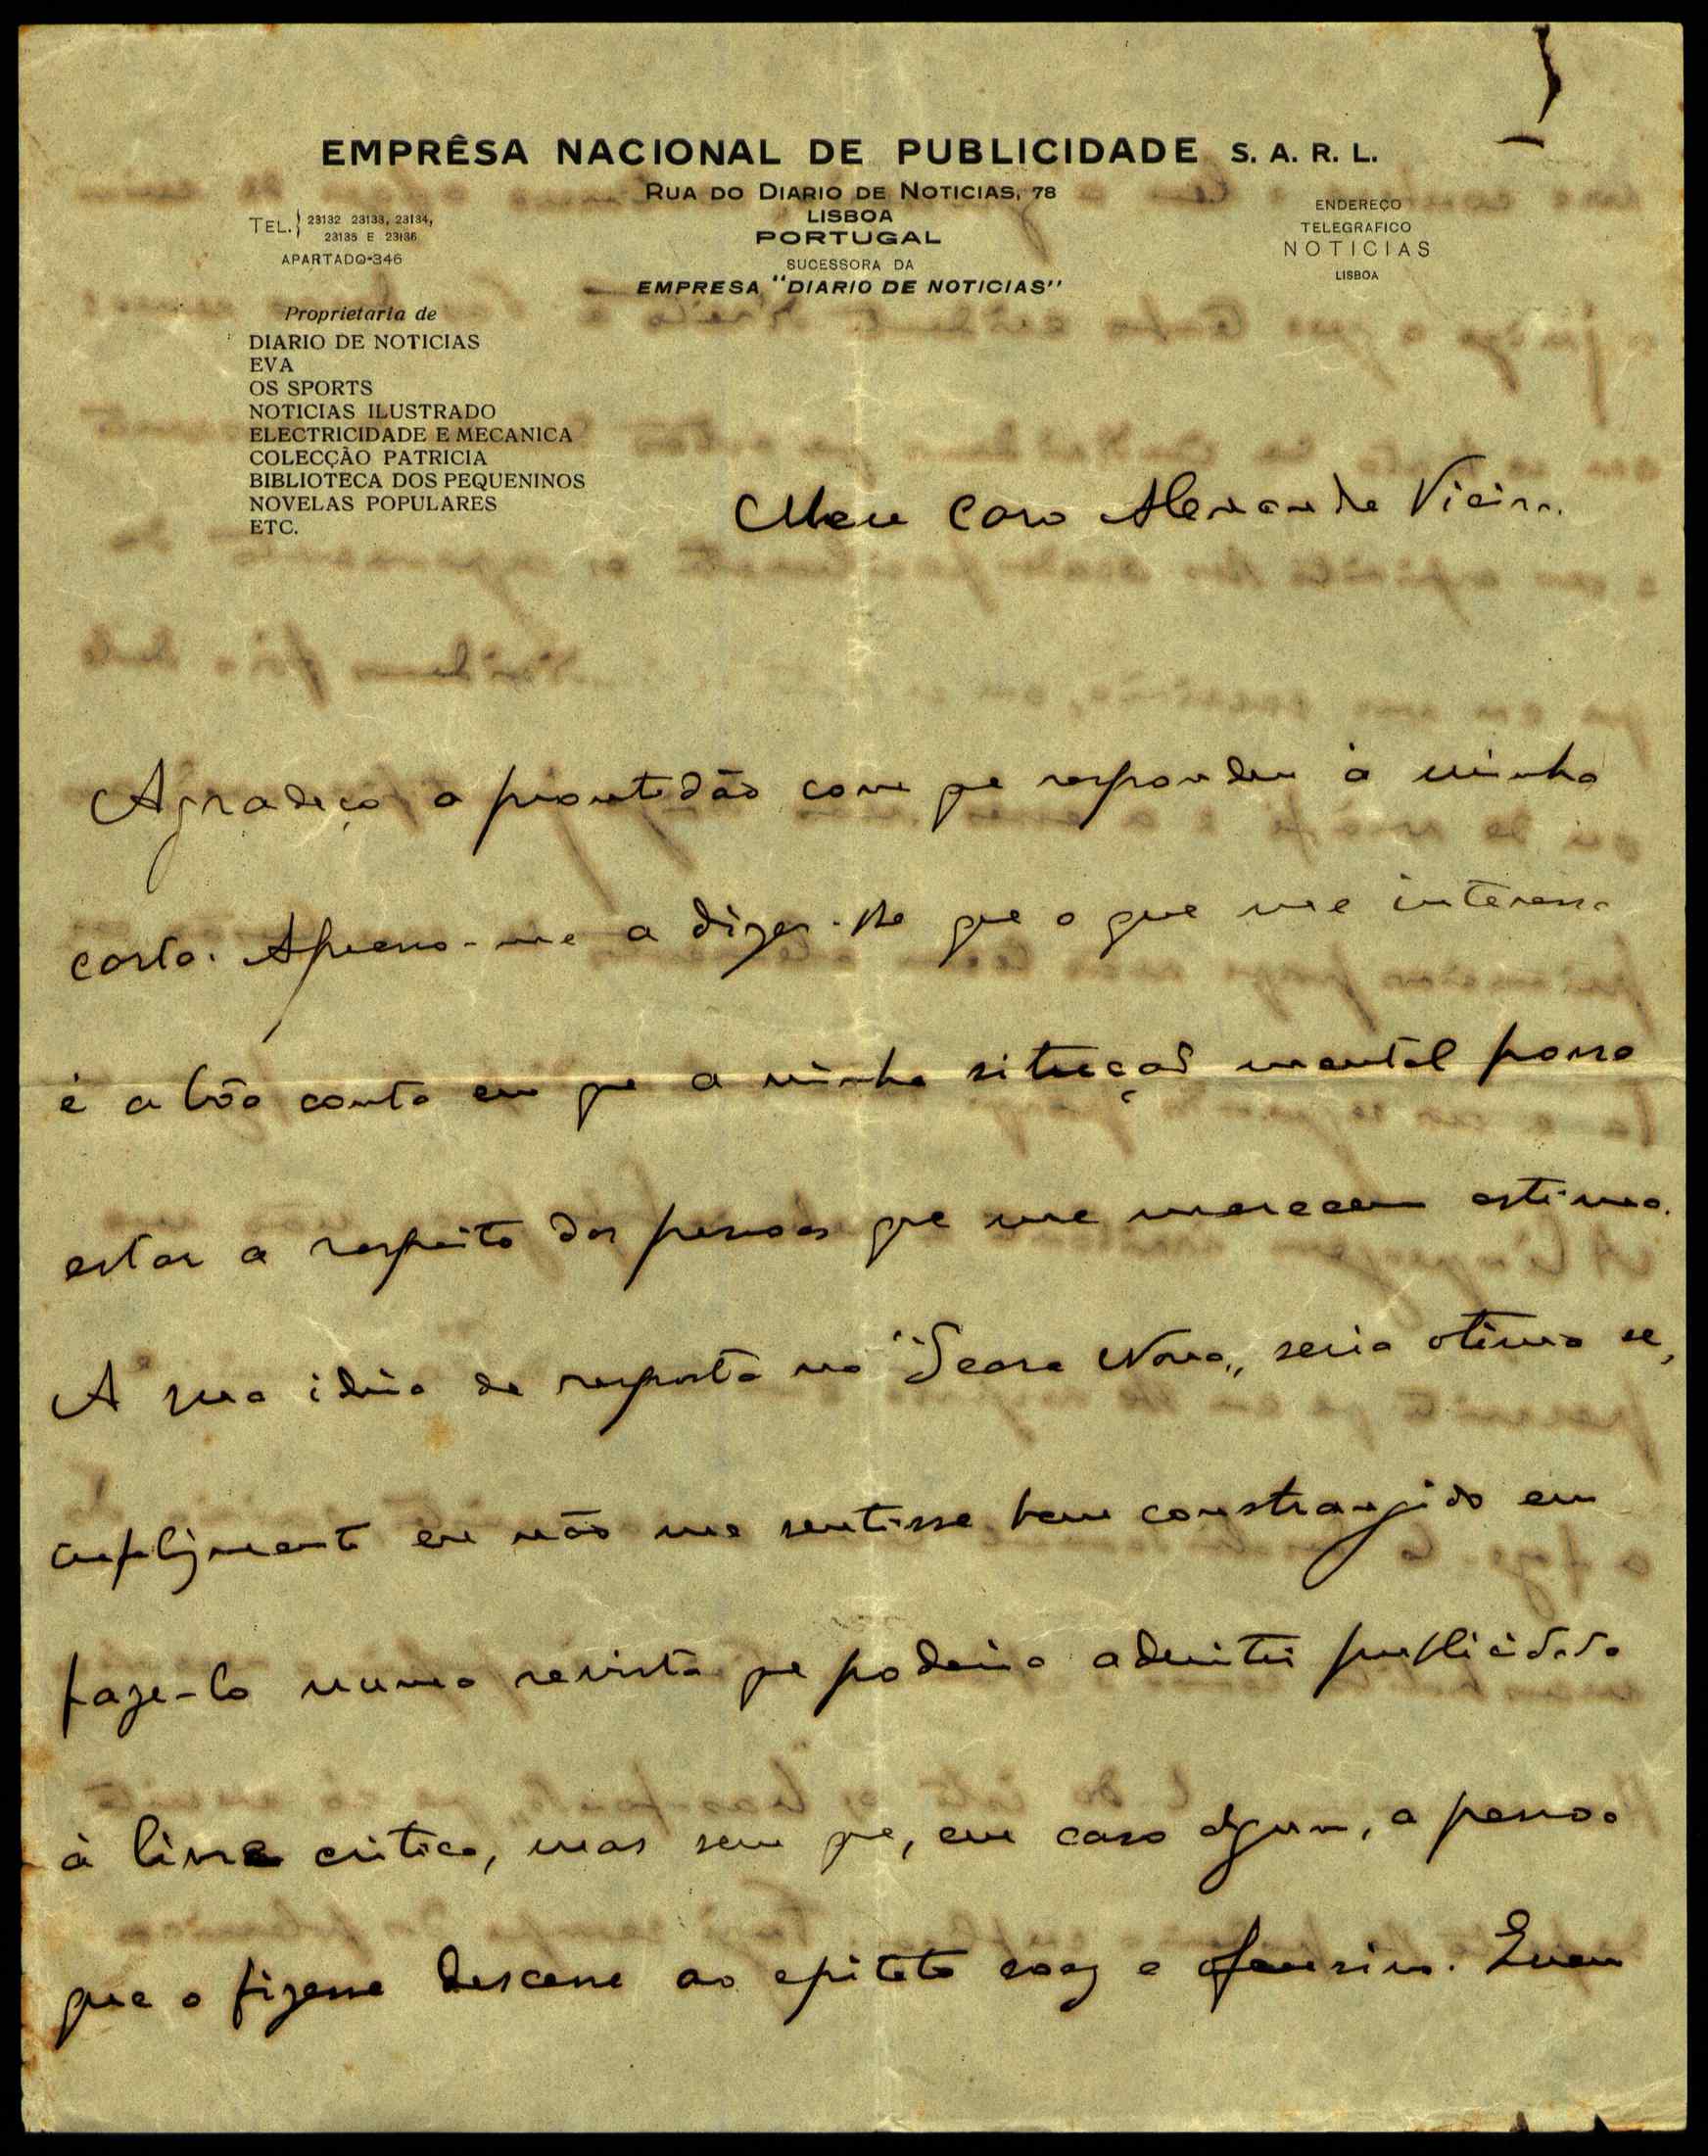 EMPRÊSA NACIONAL DE PUBLICIDADE S. A. R. L.
RUA DO DIARIO DE NOTICIAS, 78
LISBOA
PORTUGAL
SUCESSORA DA
EMPRESA "DIARIO DE NOTICIAS"
TEL. 23132 23133, 23134,
23135 E 23136
APARTADO-346
ENDEREÇO
TELEGRAFICO
NOTICIAS
LISBOA
Proprietaria de
DIARIO DE NOTICIAS
EVA
OS SPORTS
NOTICIAS ILUSTRADO
ELECTRICIDADE E MECANICA
COLECÇÃO PATRICIA
BIBLIOTECA DOS PEQUENINOS
NOVELAS POPULARES
ETC.
Meu caro Alexandre Vieira.
Agradeço a prontidão com que respondeu à minha
carta. Apresso-me a dizer-lhe que o que me interessa
é a bôa conta em que a minha situação mental possa
estar a respeito das pessoas que me merecem estima.
A sua ideia de resposta na "Seara Nova" seria otima se,
infelizmente eu não me sentisse bem constrangido em
faze-lo numa revista que poderia admitir publicidade
à livre critica, mas sem que, em caso algum, a pessoa
que o fizesse descesse ao epiteto soez e ofensivo. Quem